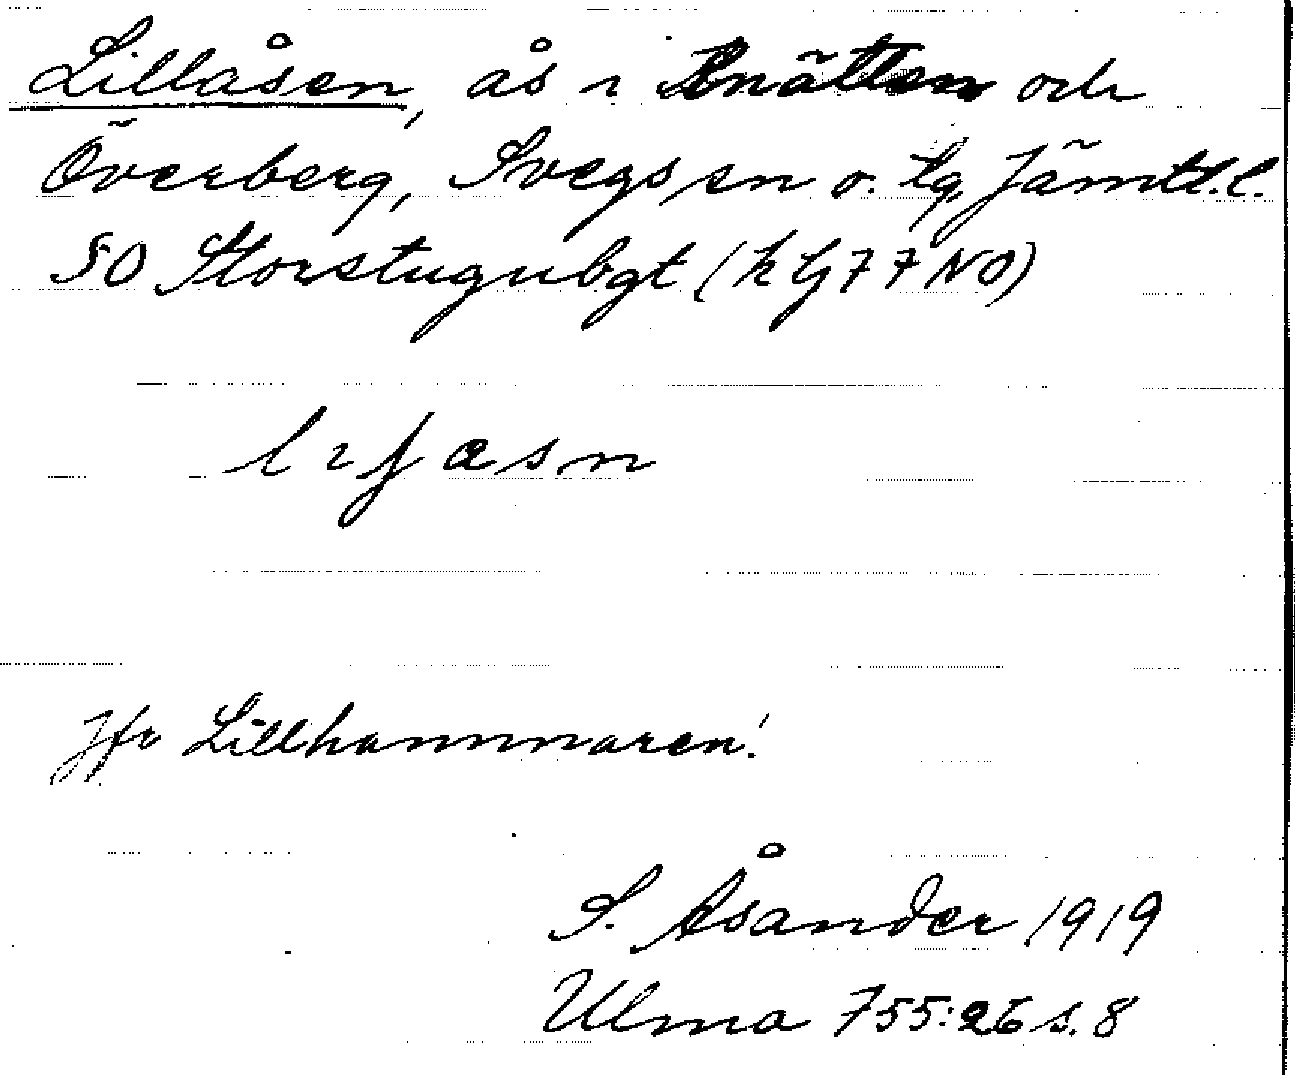 Lillåsen, ås i Knätten och
Överberg, Svegs sn o. tg. Jämtl.l.
SO Storstugubgt (k G77NO)
Jfr Lillhammaren!
S. Åsander 1919
Ulma 755:26 s. 8